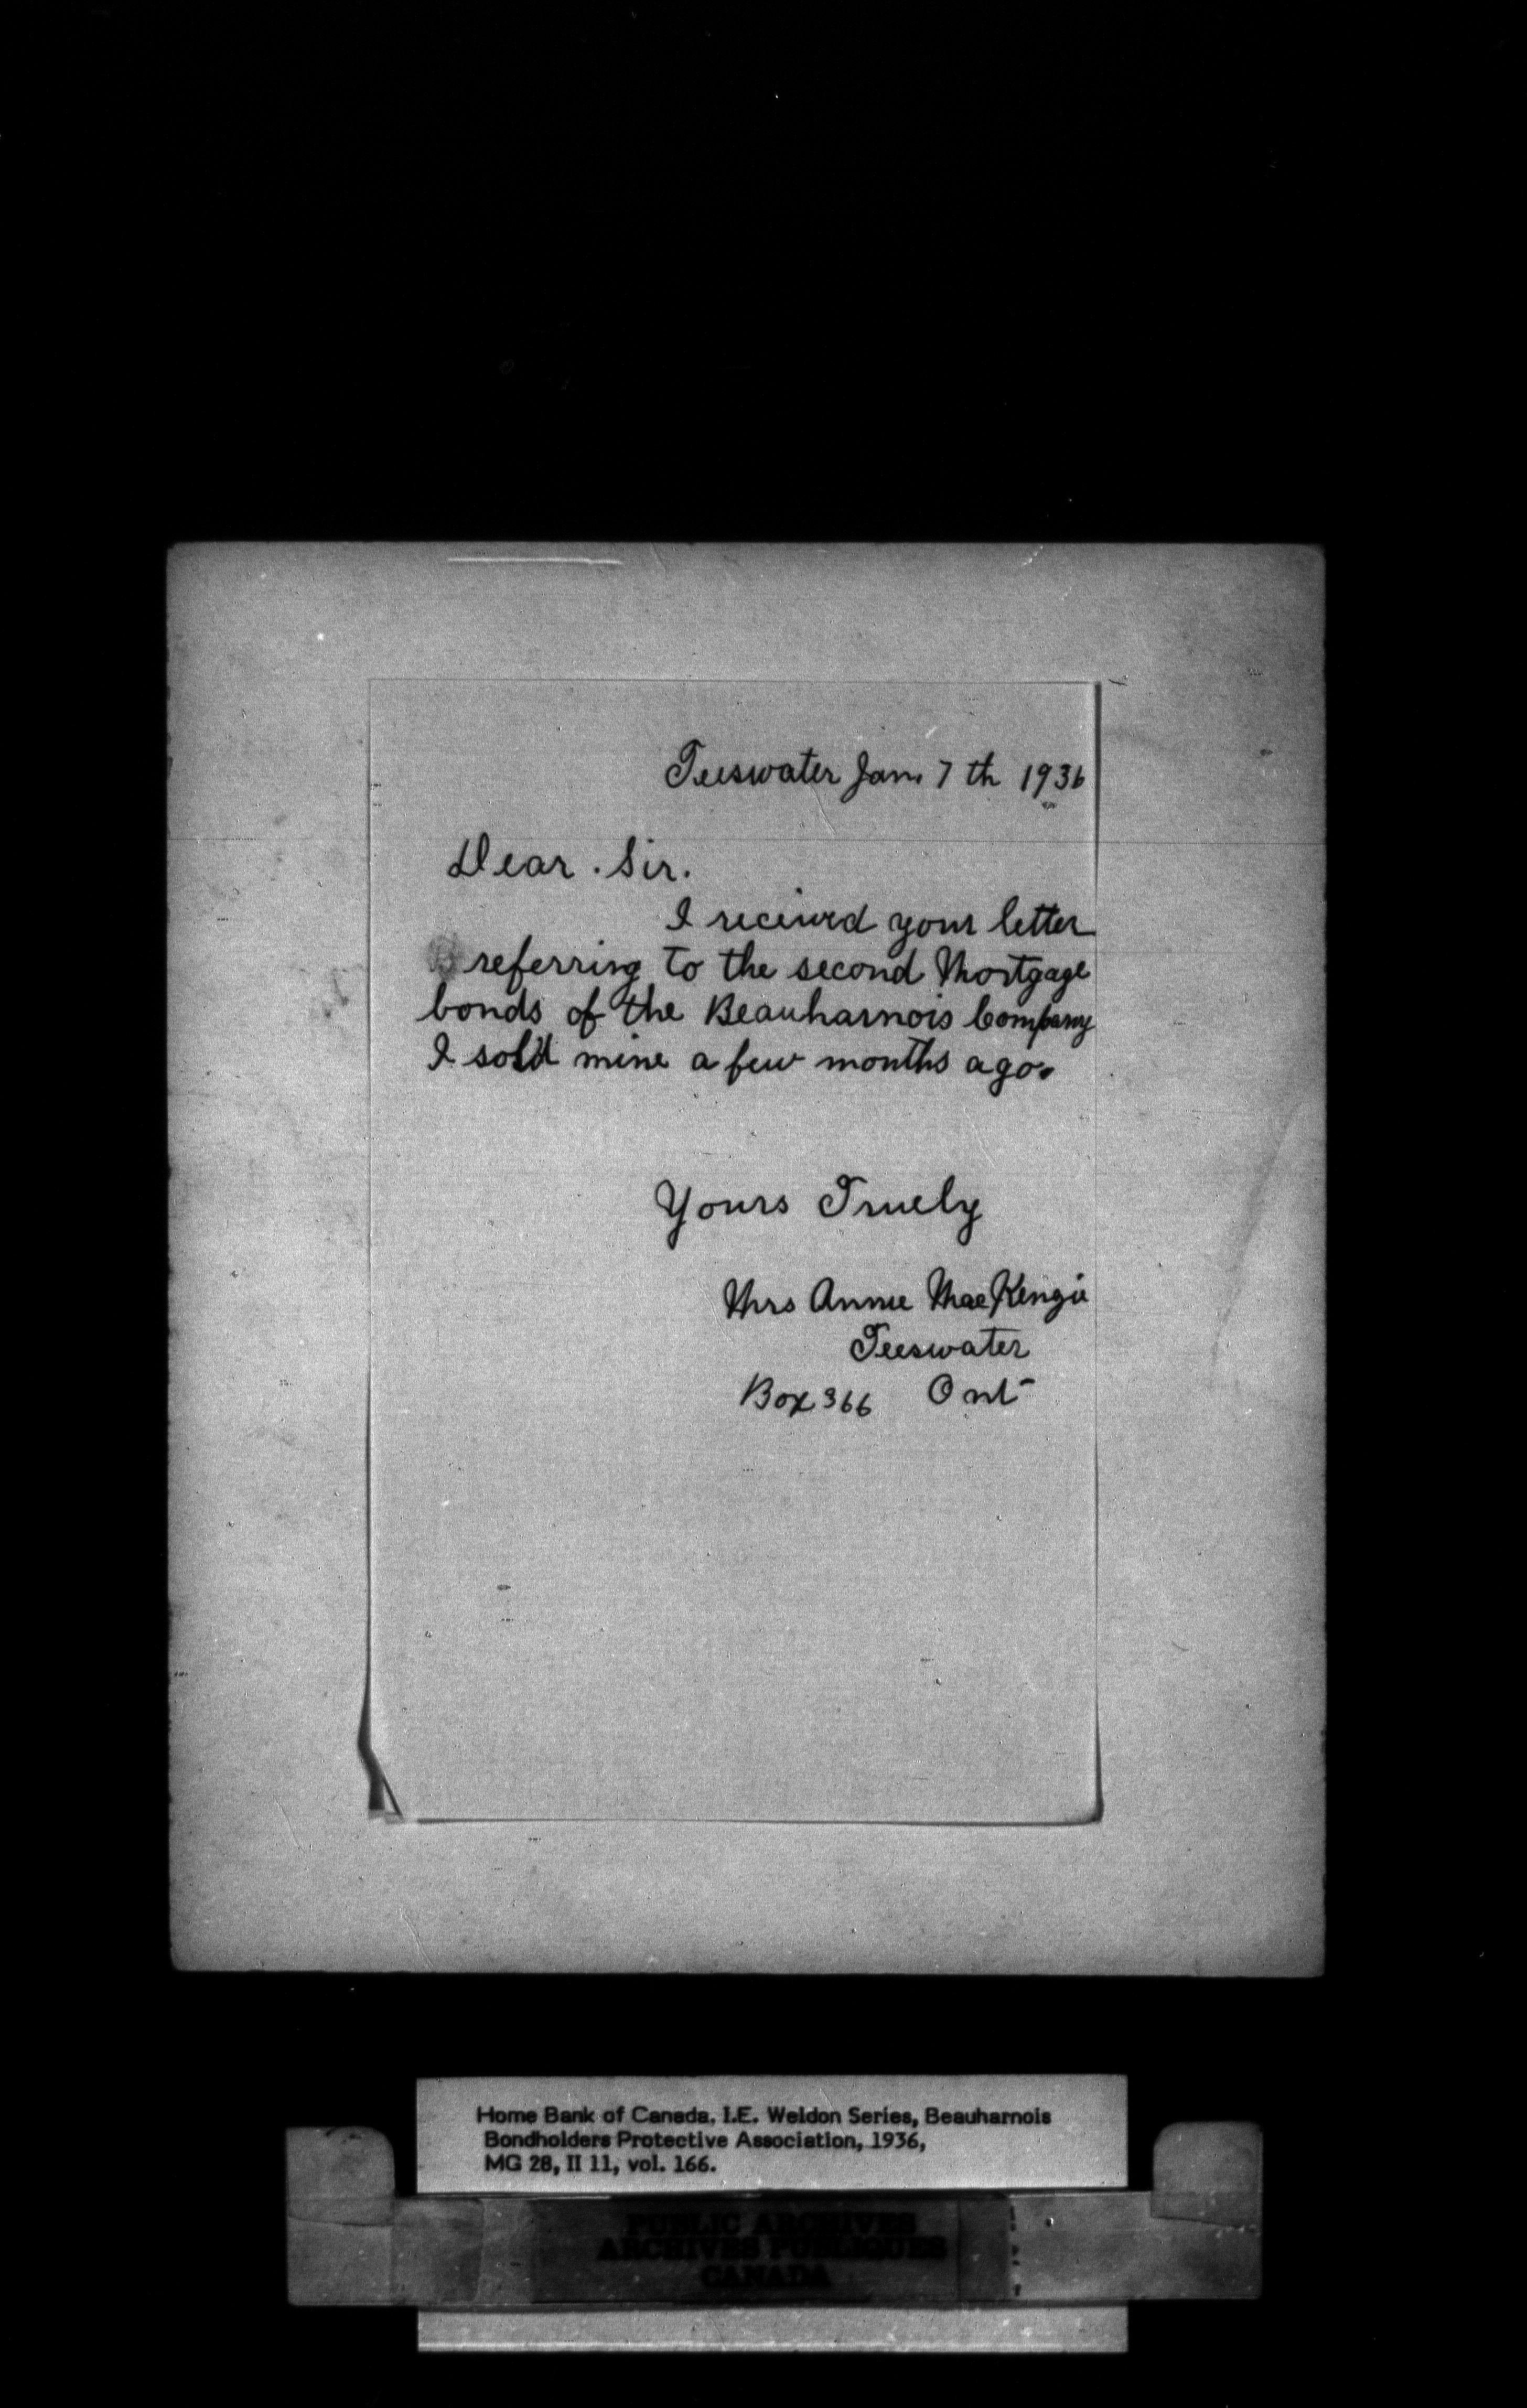 Teeswater Jan. 7 th 1936
Dear . Sir.
I received your letter
referring to the second Mortgage
bonds of the Beauharnois Company
I sold mine a few months ago.
Yours Truely
Mrs Annie MacKenzie
Teeswater
Box 366 Ont
Home Bank of Canada, I.E. Weldon Series, Beauharnois
Bondholders Protective Association, 1936,
MG 28, II 11, vol. 166.
PUBLIC ARCHIVES
ARCHIVES PUBLIQUES
CANADA